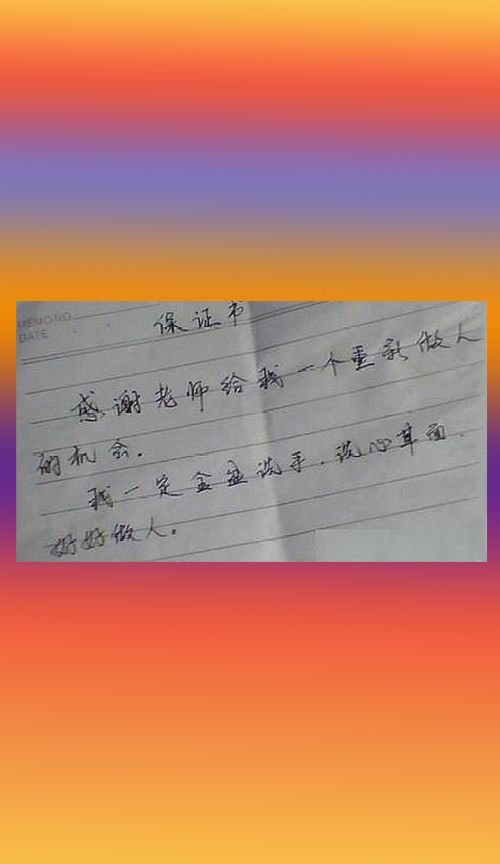 MEMO NO.
DATE
保证书
感谢老师给我一个重新做人
的机会.
我一定金盆洗手.洗心革面.
好好做人.